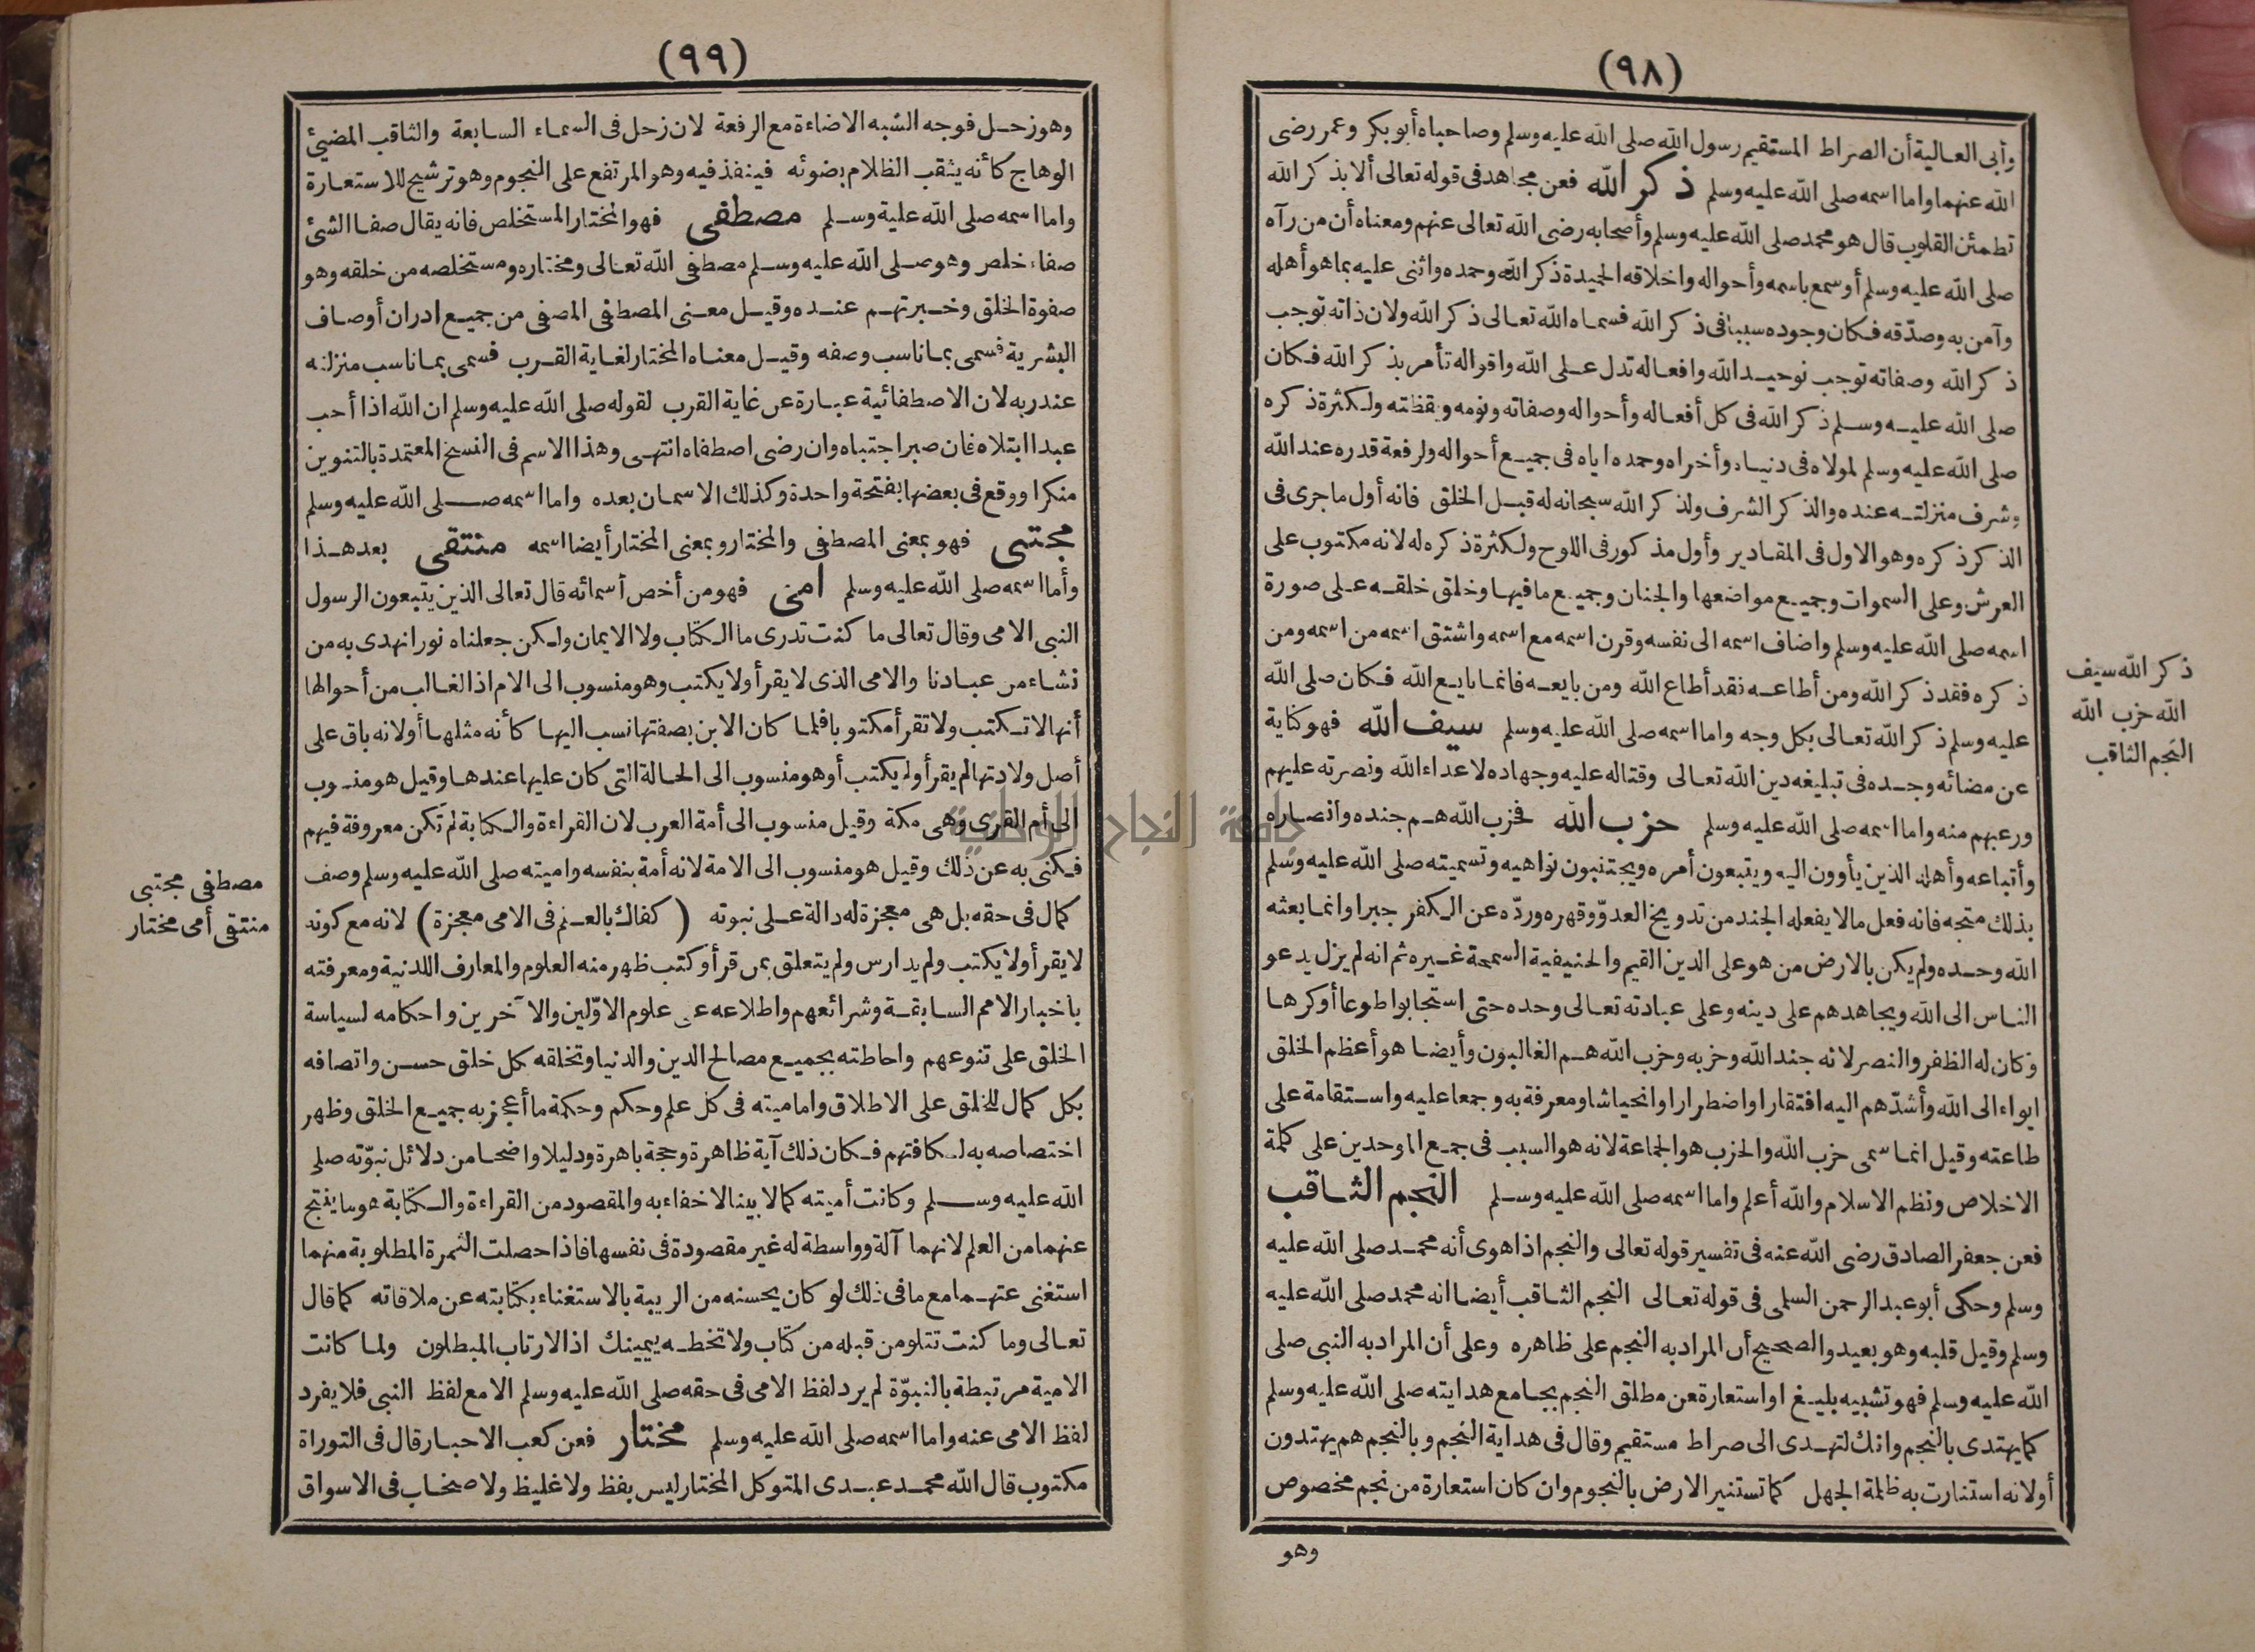 (٩٨)
وأبى العالية أن الصراط المستقيم رسول الله صلى الله عليه وسلم وصاحباه أبو بكر وعمر رضى
الله عنهما واما اسمه صلى الله عليه وسلم ذكر الله فعن مجاهد فى قوله تعالى ألا بذكر الله
تطمئن القلوب قال هو محمد صلى الله عليه وسلم وأصحابه رضى الله تعالى عنهم ومعناه أن من رآه
صلى الله عليه وسلم أو سمع باسمه وأحواله واخلاقه الحميدة ذكر الله وحمده واثنى عليه بما هو أهله
وآمن به وصدّقه فكان وجوده سببا فى ذكر الله فسماه الله تعالى ذكر الله ولان ذاته توجب
ذكر الله وصفاته توجب توحيد الله وافعاله تدل على الله واقواله تأمر بذكر الله فكان
صلى الله عليه وسلم ذكر الله فى كل أفعاله وأحواله وصفاته ونومه ويقظته ولكثرة ذكره
صلى الله عليه وسلم لمولاه فى دنياه وأخراه وحمده اياه فى جميع أحواله ولرفعة قدره عند الله
وشرف منزلته عنده والذكر الشرف ولذكر الله سبحانه له قبل الخلق فانه أول ما جرى فى
الذكر ذكره وهو الاول فى المقادير وأول مذكور فى اللوح ولكثرة ذكره له لانه مكتوب على
العرش وعلى السموات وجميع مواضعها والجنان وجميع ما فيها وخلق خلقه على صورة
اسمه صلى الله عليه وسلم واضاف اسمه الى نفسه وقرن اسمه مع اسمه واشتق اسمه من اسمه ومن
ذكره فقد ذكر الله ومن أطاعه فقد أطاع الله ومن بايعه فانما بايع الله فكان صلى الله
عليه وسلم ذكر الله تعالى بكل وجه واما اسمه صلى الله عليه وسلم سيف الله فهو كناية
عن مضائه وجده فى تبليغه دين الله تعالى وقتاله عليه وجهاده لاعداء الله ونصرته عليهم
ورعبهم منه واما اسمه صلى الله عليه وسلم حزب الله فحزب الله هم جنده وانصاره
وأتباعه وأهله الذين يأوون اليه ويتبعون أمره ويجتنبون نواهيه وتسميته صلى الله عليه وسلم
بذلك متجه فانه فعل ما لا يفعله الجند من تدويخ العدوّ وقهره وردّه عن الكفر جبرا وانما بعثه
الله وحده ولم يكن بالارض من هو على الدين القيم والحنيفية السمحة غيره ثم انه لم يزل يدعو
الناس الى الله ويجاهدهم على دينه وعلى عبادته تعالى وحده حتى استجابوا طوعا أو كرها
وكان له الظفر والنصر لانه جند الله وحزبه وحزب الله هم الغالبون وأيضا هو أعظم الخلق
ايواء الى الله وأشدّهم اليه افتقارا واضطرارا وانحياشا ومعرفة به وجمعا عليه واستقامة على
طاعته وقيل انما سمى حزب الله والحزب هو الجماعة لانه هو السبب فى جمع الموحدين على كلمة
الاخلاص ونظم الاسلام والله أعلم واما اسمه صلى الله عليه وسلم النجم الثاقب
فعن جعفر الصادق رضى الله عنه فى تفسير قوله تعالى والنجم اذا هوى أنه محمد صلى الله عليه
وسلم وحكى أبو عبد الرحمن السلمى فى قوله تعالى النجم الثاقب أيضا انه محمد صلى الله عليه
وسلم وقيل قلبه وهو بعيد والصحيح أن المراد به النجم على ظاهره وعلى أن المراد به النبى صلى
الله عليه وسلم فهو تشبيه بليغ او استعارة عن مطلق النجم بجامع هدايته صلى الله عليه وسلم
كما يهتدى بالنجم وانك لتهدى الى صراط مستقيم وقال فى هداية النجم وبالنجم هم يهتدون
أو لانه استنارت به ظلمة الجهل كما تستنير الارض بالنجوم وان كان استعارة من نجم مخصوص
وهو
ذكر الله سيف
الله حزب الله
النجم الثاقب
(٩٩)
وهو زحل فوجه الشبه الاضاءة مع الرفعة لان زحل فى السماء السابعة والثاقب المضيئ
الوهاج كأنه يثقب الظلام بضوئه فينفذ فيه وهو المرتفع على النجوم وهو ترشيح للاستعارة
واما اسمه صلى الله علية وسلم مصطفى فهو المختار المستخلص فانه يقال صفا الشئ
صفاء خلص وهو صلى الله عليه وسلم مصطفى الله تعالى ومختاره ومستخلصه من خلقه وهو
صفوة الخلق وخبرتهم عنده وقيل معنى المصطفى المصفى من جميع ادران أوصاف
البشرية فسمى بما ناسب وصفه وقيل معناه المختار لغاية القرب فسمى بما ناسب منزلته
عند ربه لان الاصطفائية عبارة عن غاية القرب لقوله صلى الله عليه وسلم ان الله اذا أحب
عبدا ابتلاه فان صبر اجتباه وان رضى اصطفاه انتهى وهذا الاسم فى النسخ المعتمدة بالتنوين
منكرا ووقع فى بعضها بفتحة واحدة وكذلك الاسمان بعده واما اسمه صلى الله عليه وسلم
مجتبى فهو بمعنى المصطفى والمختار وبمعنى المختار أيضا اسمه منتقى بعد هذا
وأما اسمه صلى الله عليه وسلم امى فهو من أخص أسمائه قال تعالى الذين يتبعون الرسول
النبى الامى وقال تعالى ما كنت تدرى ما الكتاب ولا الايمان ولكن جعلناه نورا نهدى به من
نشاء من عبادنا والامى الذى لا يقرأ ولا يكتب وهو منسوب الى الام اذ الغالب من أحوالها
أنها لا تكتب ولا تقرأ مكتوبا فلما كان الابن بصفتها نسب اليها كأنه مثلها أو لانه باق على
أصل ولادتها لم يقرأ ولم يكتب أو هو منسوب الى الحالة التى كان عليها عندها وقيل هو منسوب
الى أم القرى وهى مكة وقيل منسوب الى أمة العرب لان القراءة والكتابة لم تكن معروفة فيهم
فكنى به عن ذلك وقيل هو منسوب الى الامة لانه أمة بنفسه واميته صلى الله عليه وسلم وصف
كمال فى حقه بل هى معجزة له دالة على نبوته (كفاك بالعلم فى الامى معجزة) لانه مع كونه
لا يقرأ ولا يكتب ولم يدارس ولم يتعلق بمن قرأ وكتب ظهر منه العلوم والمعارف اللدنية ومعرفته
باخبار الامم السابقة وشرائعهم واطلاعه على علوم الاوّلين والآخرين واحكامه لسياسة
الخلق على تنوعهم واحاطته بجميع مصالح الدين والدنيا وتخلقه بكل خلق حسن واتصافه
بكل كمال للخلق على الاطلاق وامامیته فى كل علم وحكم وحكمة ما أعجز به جميع الخلق وظهر
اختصاصه به لكافتهم فكان ذلك آية ظاهرة وحجة باهرة ودليلا واضحا من دلائل نبوّته صلى
الله عليه وسلم وكانت أميته كمالا بينا لاخفاء به والمقصود من القراءة والكتابة هو ما ينتج
عنهما من العلم لانهما آلة وواسطة له غير مقصودة فى نفسها فاذا حصلت الثمرة المطلوبة منهما
استغنى عنهما مع ما فى ذلك لو كان يحسنه من الريبة بالاستغناء بكتابته عن ملاقاته كما قال
تعالى وما كنت تتلو من قبله من كتاب ولا تخطه بيمينك اذا لارتاب المبطلون ولما كانت
الامية مرتبطة بالنبوّة لم يرد لفظ الامى فى حقه صلى الله عليه وسلم الا مع لفظ النبى فلا يفرد
لفظ الامى عنه واما اسمه صلى الله عليه وسلم مختار فعن كعب الاحبار قال فى التوراة
مكتوب قال الله محمد عبدى المتوكل المختار ليس بفظ ولا غليظ ولا صخاب فى الاسواق
مصطفى مجتبى
منتقى أمى مختار
جامعة النجاح الوطنية